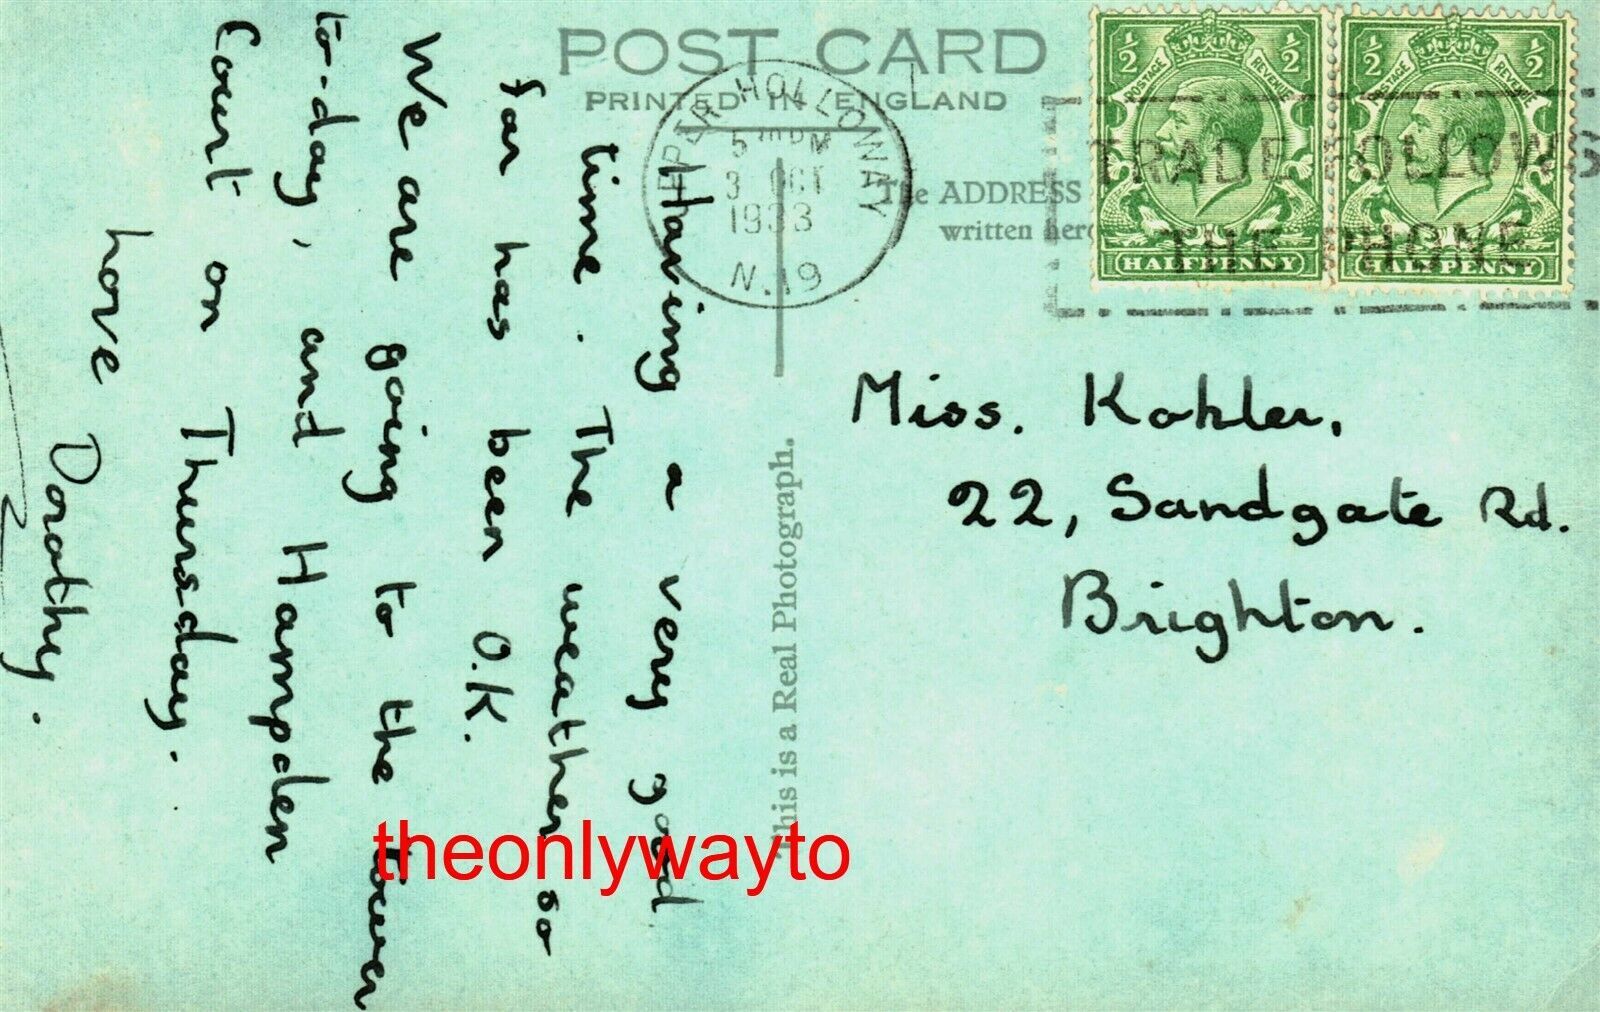 POST CARD
PRINTED IN ENGLAND
UPPER HOLLOWAY
PM
3 OCT
1933
N.19
The ADDRESS
written here
½ ½
POSTAGE REVENUE
HALFPENNY
½ ½
POSTAGE REVENUE
HALFPENNY
TRADE FOLLOWS
THE PHONE
Miss. Kohler,
22, Sandgate Rd.
Brighton.
This is a Real Photograph.
Having a very good
time. The weather so
far has been O.K.
We are going to the tower
to-day, and Hampden
Court on Thursday.
Love Dorothy.
theonlywayto